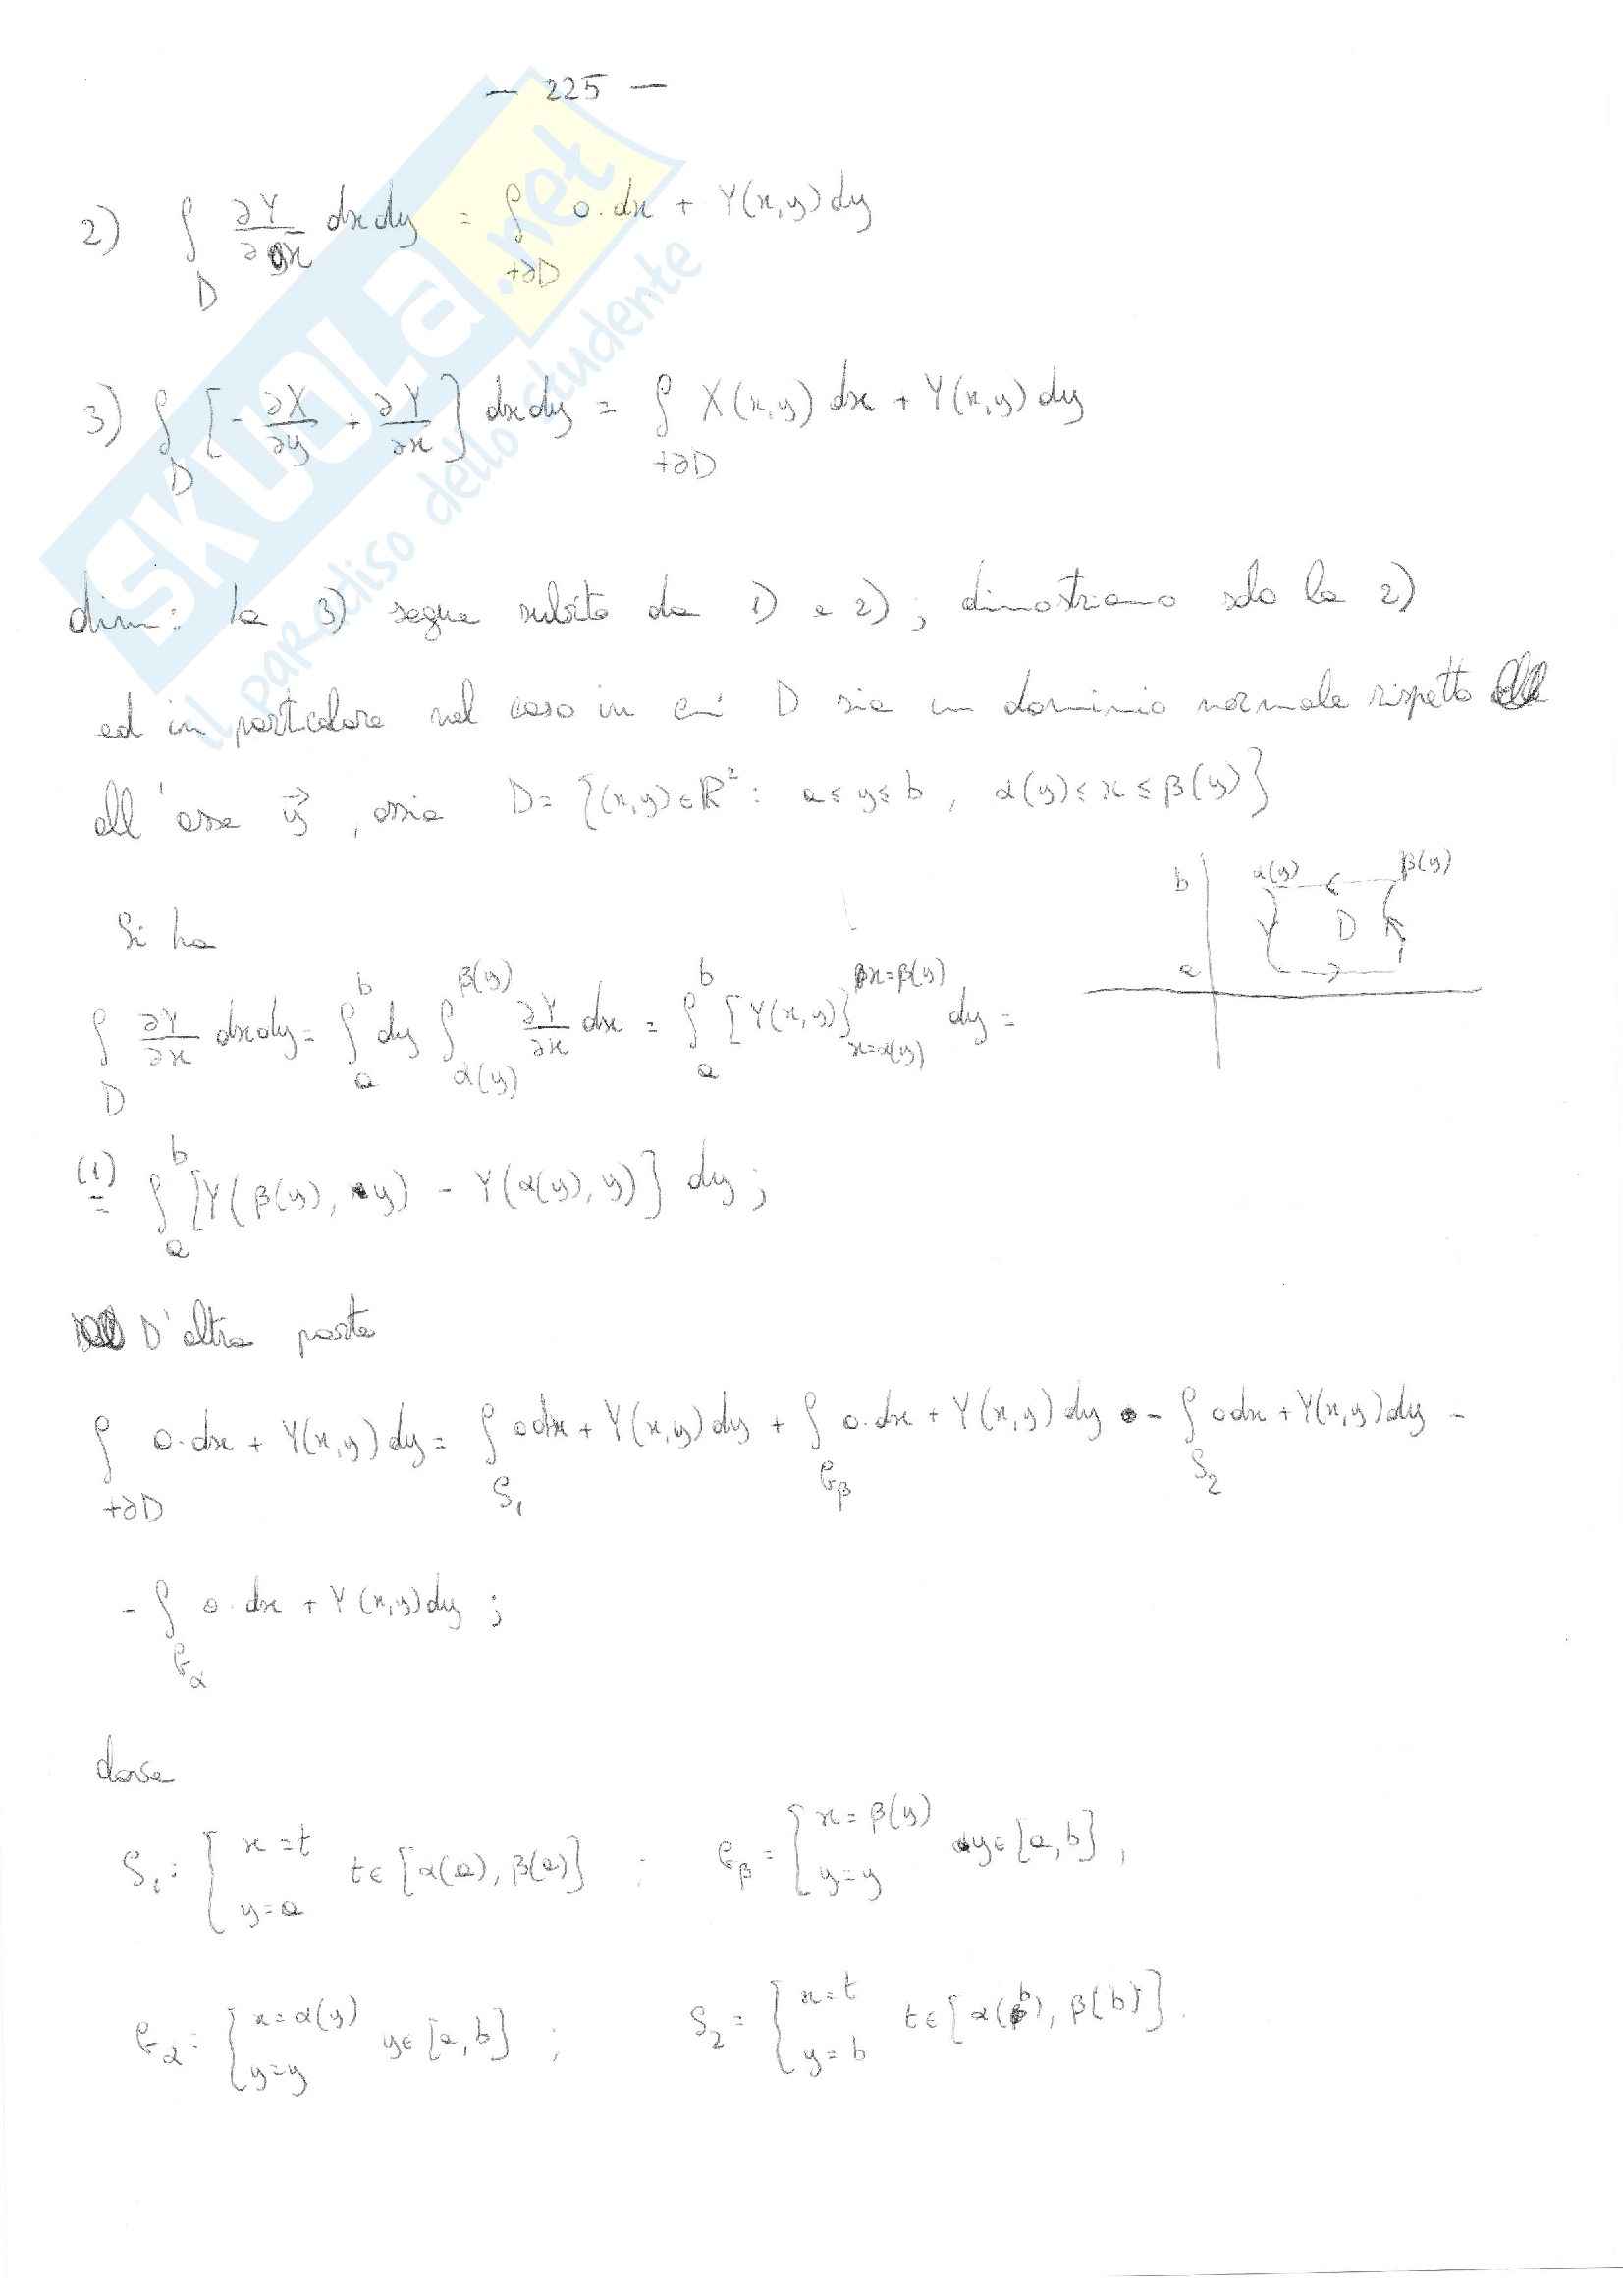 — 225 —
2) ∫_D ∂Y/∂x dxdy = ∫_{+∂D} 0·dx + Y(x,y)dy
3) ∫_D [-∂X/∂y + ∂Y/∂x] dxdy = ∫_{+∂D} X(x,y) dx + Y(x,y) dy
dim: la 3) segue subito da 1) e 2); dimostriamo solo la 2)
ed in particolare nel caso in cui D sia un dominio normale rispetto
all'asse y⃗, ossia D = {(x,y)∈ℝ²: a≤y≤b, α(y)≤x≤β(y)}
b α(y) β(y)
D
a
Si ha
∫_D ∂Y/∂x dxdy = ∫_a^b dy ∫_{α(y)}^{β(y)} ∂Y/∂x dx = ∫_a^b [Y(x,y)]_{x=α(y)}^{x=β(y)} dy =
(1)= ∫_a^b [Y(β(y), y) - Y(α(y), y)] dy;
D'altra parte
∫_{+∂D} 0·dx + Y(x,y)dy = ∫_{S₁} 0dx + Y(x,y)dy + ∫_{ℓ_β} 0·dx + Y(x,y)dy - ∫_{S₂} 0dx + Y(x,y)dy -
- ∫_{ℓ_α} 0·dx + Y(x,y)dy;
dove
S₁ = { x=t y=a t∈[α(a), β(a)] ; ℓ_β = { x=β(y) y=y y∈[a,b],
ℓ_α = { x=α(y) y=y y∈[a,b] ; S₂ = { x=t y=b t∈[α(b), β(b)].
SKUOLA.net
il paradiso dello studente